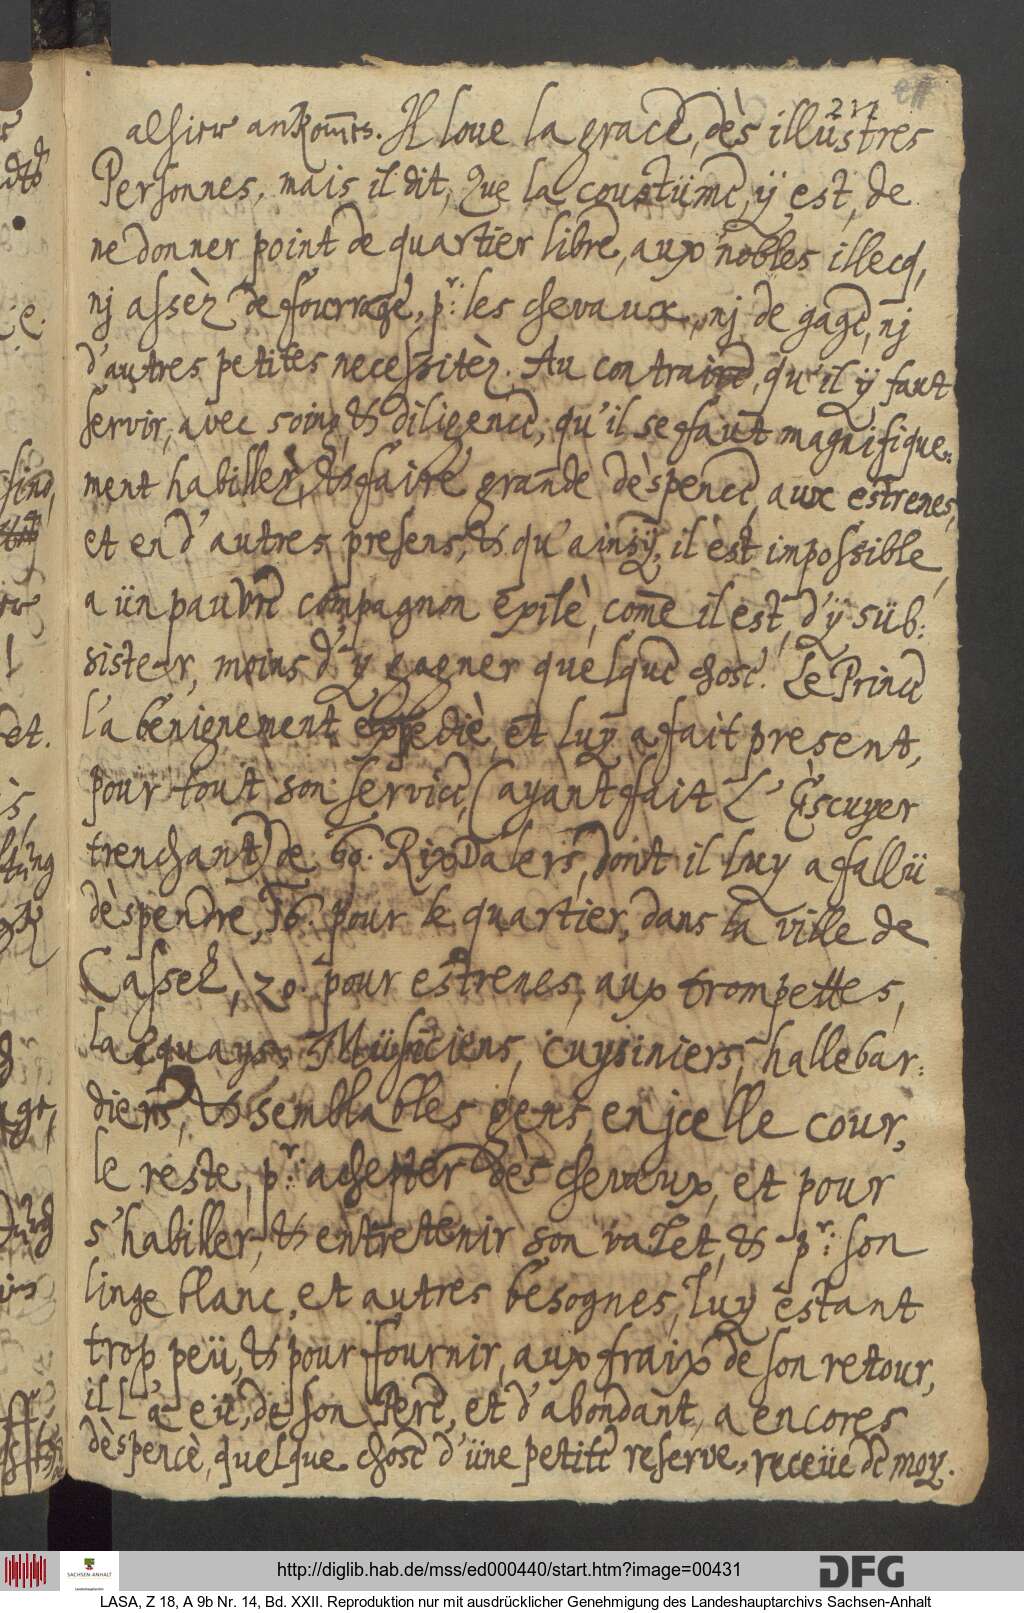 217
alhier ankom̅es. Il loue la grace, dès illüstres
Personnes, mais il dit, Que la coustüme, ÿ est, de
ne donner point de quartier libre, aux nobles illecq,
nj assèz de fourrage, pr: les chevaux, nj de gage, nj
d'autres petites necessitèz. Au contraire, qu'il ÿ faut
servir, avec soing, & diligence, qu'il se faut magnifique-
ment habiller, & faire grande dèspence, aux estrenes,
et en d'autres presens, & qu'ainsÿ, il èst impossible,
a ün pauvre compagnon exilè, com̅e il est, d'ÿ süb:
sister, moins d'y gagner quelque chose. Le Prince
l'a benignement expediè, et luy a fait present,
pour tout son service, (ayant fait L'Escuyer
trenchant) de 60. RixDalers, dont il luy a fallü
dèspendre, 16. pour le quartier, dans la ville de
Cassel, 20. pour estrenes, aux trompettes,
laequays, Müsiciens, cuysiniers, hallebar:
diers, & semblables gens, en jcelle cour,
le reste, pr: achepter dès chevaux, et pour
s'habiller, & entretenir son valet, & pr: son
linge blanc, et autres besognes, luy estant
trop peü, & pour fournir, aux fraix de son retour,
il l'a eü, de son Pere, et d'abondant, a encores
dèspencè, quelque chose d'üne petite reserve, receüe de moy.
http://diglib.hab.de/mss/ed000440/start.htm?image=00431
SACHSEN-ANHALT
DFG
LASA, Z 18, A 9b Nr. 14, Bd. XXII. Reproduktion nur mit ausdrücklicher Genehmigung des Landeshauptarchivs Sachsen-Anhalt